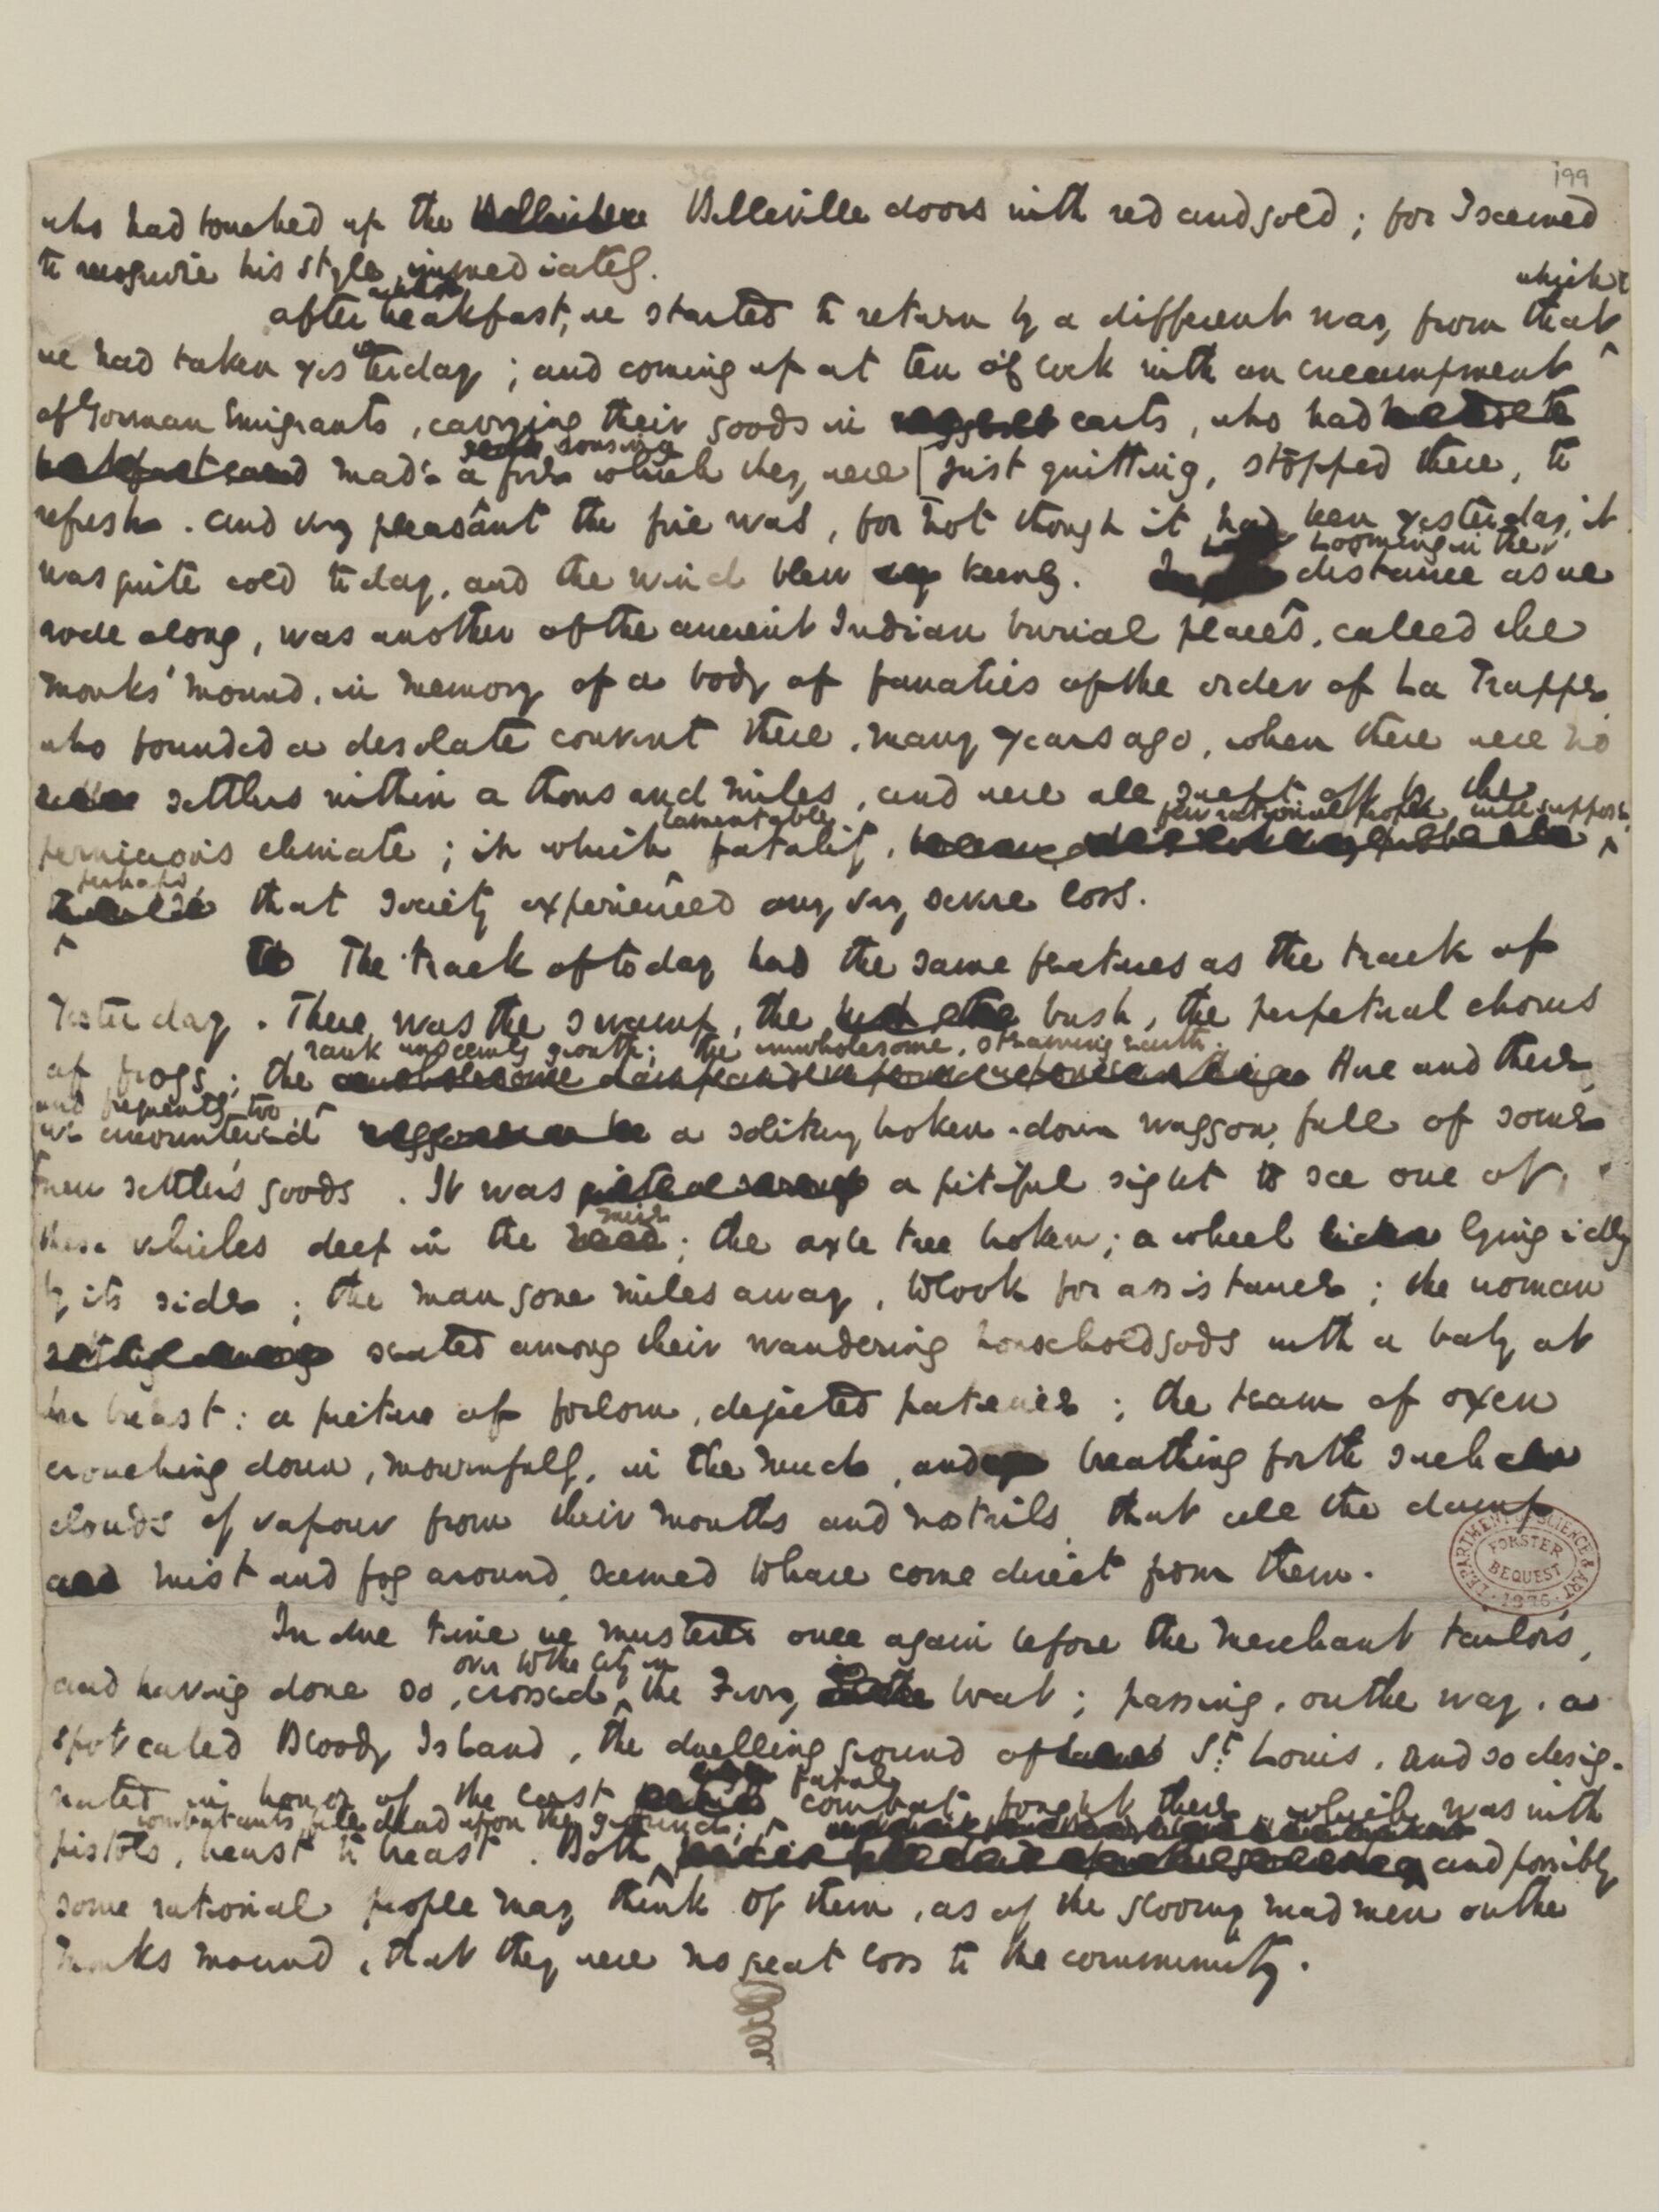 199
who had touched up the Belleville doors with red and gold; for I seemed
to recognize his style immediately.
which
After breakfast, we started to return by a different way from that
we had taken yesterday; and coming up at ten o'clock with an encampment
of German Emigrants, carrying their goods in carts, who had
rousing
made a fire which they were [just quitting, stopped there, to
refresh. And very pleasant the fire was, for hot though it had been yesterday, it
Looming in the
was quite cold to day, and the wind blew keenly. distance as we
rode along, was another of the ancient Indian burial places, called the
Monks' Mound, in memory of a body of fanatics of the order of La Trappe
who founded a desolate convent there, many years ago, when there were no
settlers within a thousand miles, and were all swept off by the
lamentable few rational people will suppose,
pernicious climate; in which fatality,
perhaps
that society experienced any very severe loss.
The track of to day had the same features as the track of
Yesterday. There was the swamp, the bush, the perpetual chorus
rank unseemly growth; the unwholesome, steaming earth.
of frogs; the Here and there
and frequently too
we encountered a solitary broken-down waggon, full of some
new settler's goods. It was a pitiful sight to see one of
these vehicles deep in the
mire
; the axle tree broken; a wheel lying idly
by its side; the man gone miles away, to look for assistance; the woman
seated among their wandering household gods with a baby at
her breast: a picture of forlorn, dejected patience; the team of oxen
crouching down, mournfully, in the mud, and breathing forth such
clouds of vapour from their mouths and nostrils, that all the damp
mist and fog around seemed to have come direct from them.
DEPARTMENT OF SCIENCE & ART
FORSTER BEQUEST
1876
In due time we mustered once again before the Merchant tailor's,
over to the City in
and having done so, crossed the Ferry boat; passing, on the way, a
spot called Bloody Island, the duelling ground of St. Louis, and so desig-
fatal
nated in honor of the last combat fought there, which was with
combatants fell dead upon the ground;
pistols, breast to breast. Both and possibly
some rational people may think of them, as of the gloomy mad men on the
Monks Mound, that they were no great loss to the community.